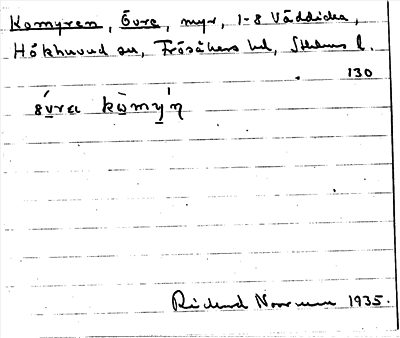 Komyren, Övre, myr, 1-8 Väddicka,
Hökhuvud sn, Frösåkers hd, Sthlms l.
130
Richard Norrman 1935.